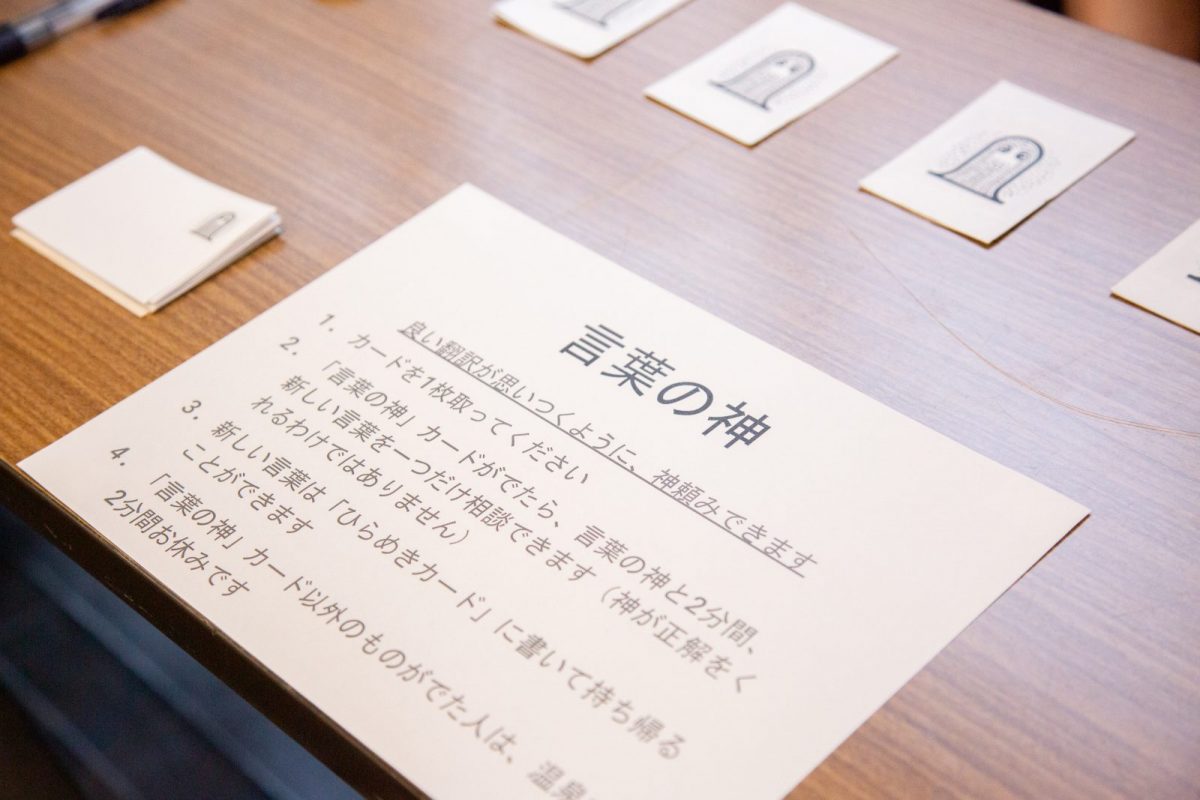 言葉の神
良い翻訳が思いつくように、神頼みできます
1. カードを1枚取ってください
2. 「言葉の神」カードがでたら、言葉の神と2分間、
新しい言葉を一つだけ相談できます（神が正解をく
れるわけではありません）
3. 新しい言葉は「ひらめきカード」に書いて持ち帰る
ことができます
4. 「言葉の神」カード以外のものがでた人は、温泉
2分間お休みです